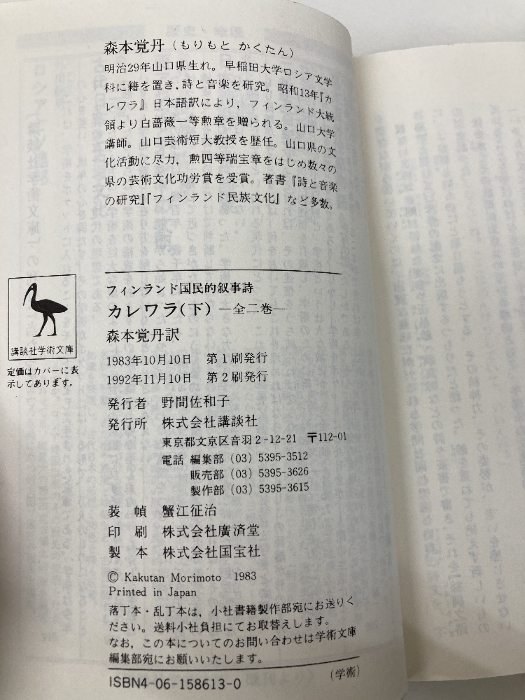 森本覚丹(もりもと かくたん)
明治29年山口県生れ。早稲田大学ロシア文学
科に籍を置き,詩と音楽を研究。昭和13年『カ
レワラ』日本語訳により,フィンランド大統
領より白薔薇一等勲章を贈られる。山口大学
講師。山口芸術短大教授を歴任。山口県の文
化活動に尽力,勲四等瑞宝章をはじめ数々の
県の芸術文化功労賞を受賞。著書『詩と音楽
の研究』『フィンランド民族文化』など多数。
フィンランド国民的叙事詩
カレワラ(下) —全二巻—
森本覚丹訳
講談社学術文庫
定価はカバーに表
示してあります。
1983年10月10日 第1刷発行
1992年11月10日 第2刷発行
発行者 野間佐和子
発行所 株式会社講談社
東京都文京区音羽2-12-21 〒112-01
電話 編集部 (03) 5395-3512
販売部 (03) 5395-3626
製作部 (03) 5395-3615
装 幀 蟹江征治
印 刷 株式会社廣済堂
製 本 株式会社国宝社
© Kakutan Morimoto 1983
Printed in Japan
落丁本・乱丁本は,小社書籍製作部宛にお送りく
ださい。送料小社負担にてお取替えします。
なお,この本についてのお問い合わせは学術文庫
編集部宛にお願いいたします。
ISBN4-06-158613-0 (学術)